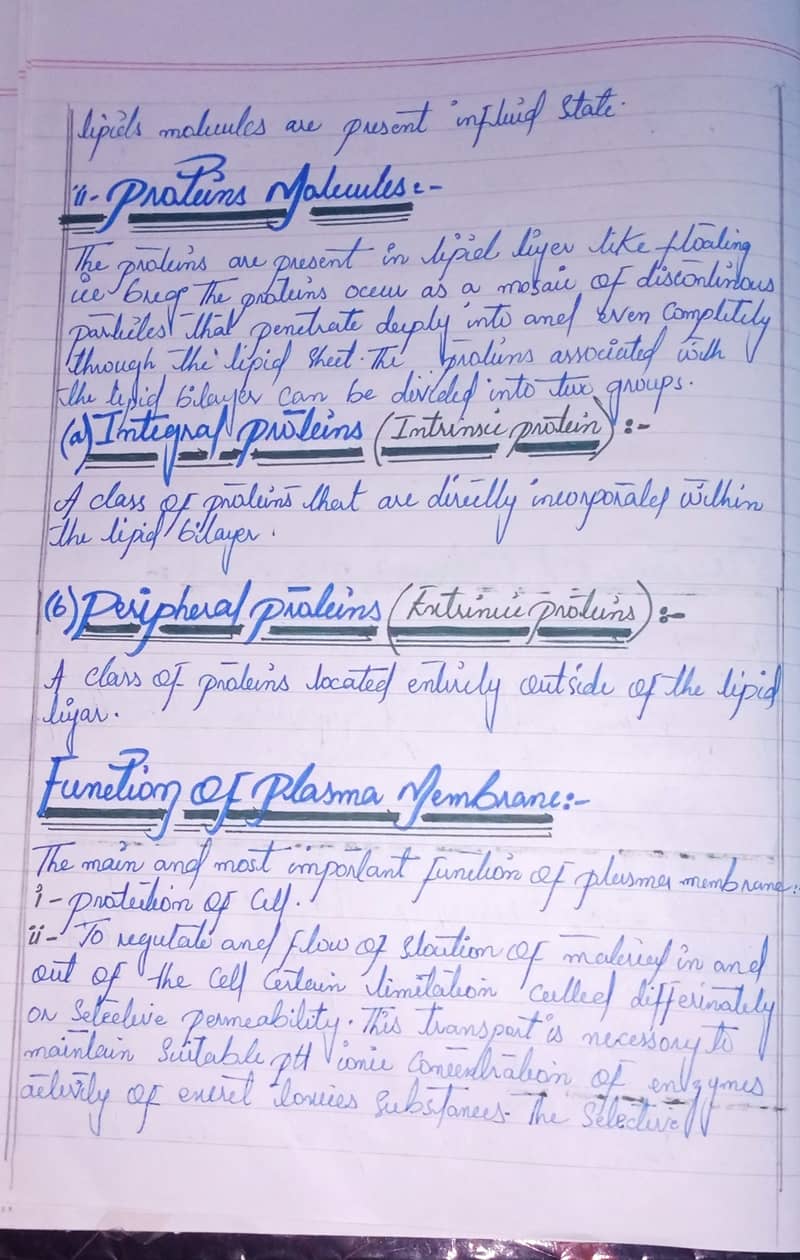 lipids molecules are present in fluid state.
ii- Proteins Molecules:-
The proteins are present in lipid liyer like floating
ice berg The proteins occur as a mosaic of discontinous
particles that penetrate deeply into and even completely
through the lipid sheet. The proteins associated with
the lipid bilayer can be divided into two groups.
(a) Integral proteins (Intrinsic protein) :-
A class of proteins that are directly incorporated within
the lipid bilayer.
(b) Peripheral proteins (Extrinsic proteins) :-
A class of proteins located entirely outside of the lipid
liyar.
Function of Plasma Membrane:-
The main and most important function of plasma membrane:
i- protection of Cell.
ii- To regulate and flow of of material in and
out of the cell certain limitation called
or selective permeability. This transport is necessory to
maintain suitable pH ionic concentration of enzymes
activity of substances. The selective